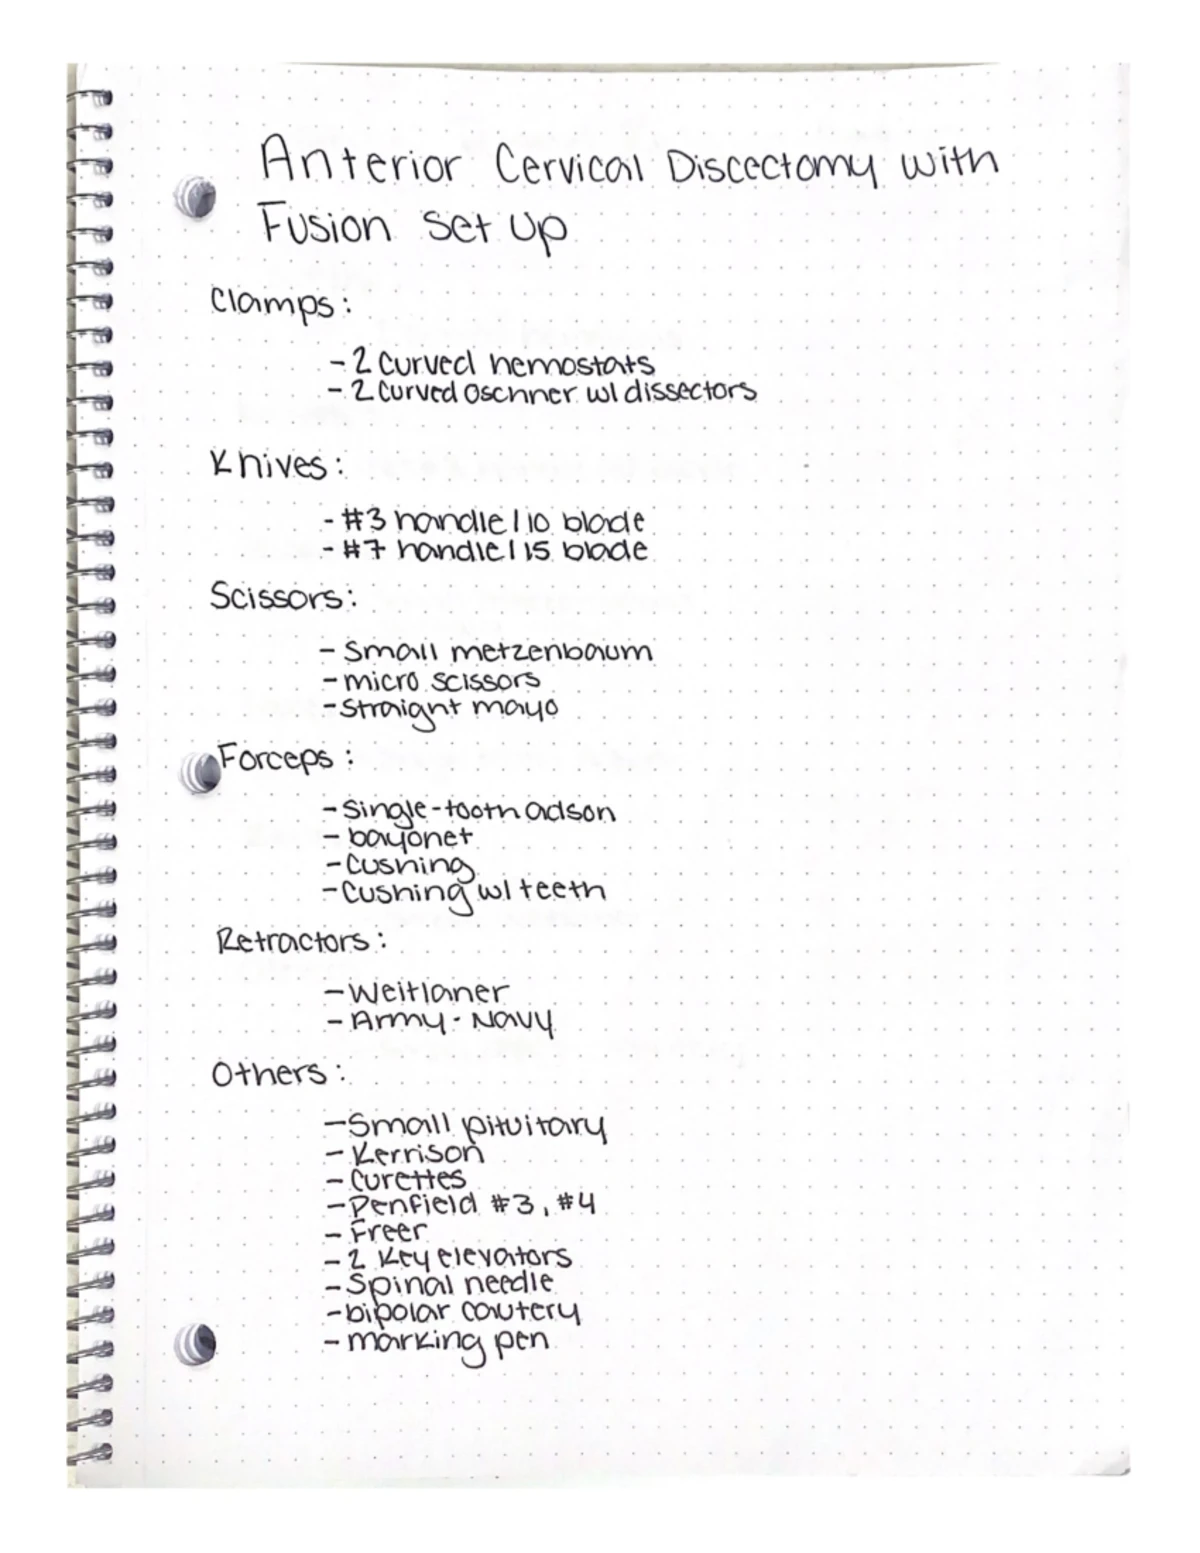 Anterior Cervical Discectomy with
Fusion Set Up
Clamps:
- 2 Curved hemostats
- 2 Curved Oschner w/ dissectors
Knives:
- #3 handle / 10 blade
- #7 handle / 15 blade
Scissors:
- Small metzenbaum
- micro scissors
- Straight mayo
Forceps:
- Single-tooth adson
- bayonet
- Cushing
- Cushing w/ teeth
Retractors:
- Weitlaner
- Army-Navy
Others:
- Small pituitary
- Kerrison
- Curettes
- Penfield #3, #4
- Freer
- 2 Key elevators
- Spinal needle
- bipolar cautery
- marking pen